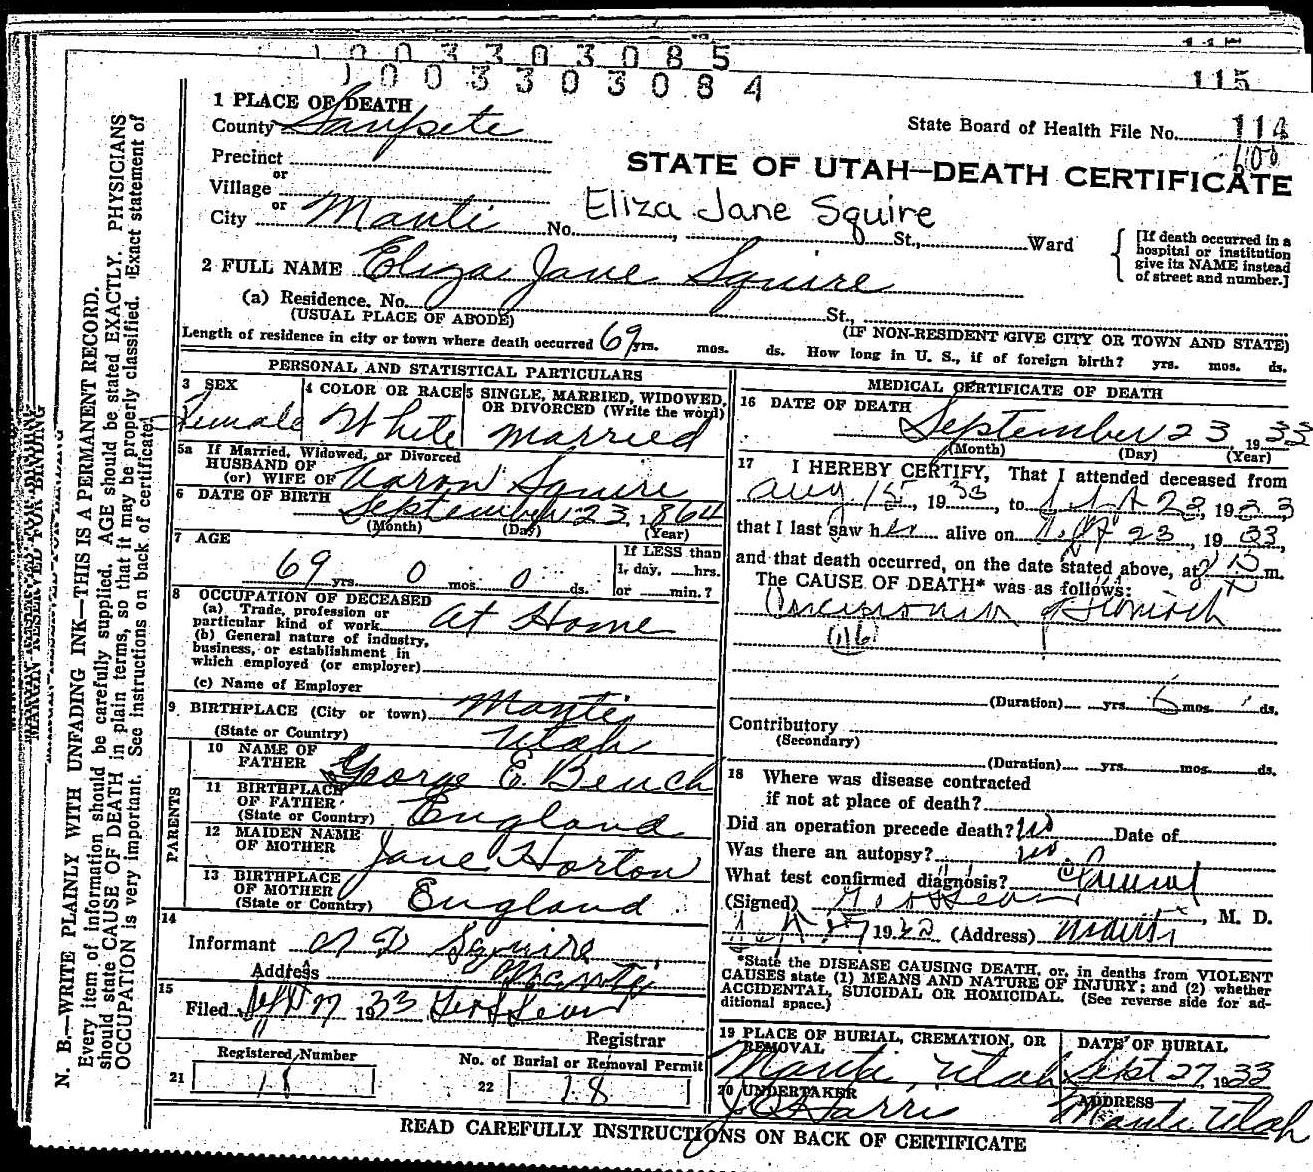 1 0 0 3 3 0 3 0 8 5
1 0 0 3 3 0 3 0 8 4
115
1 PLACE OF DEATH
County Sanpete
State Board of Health File No. 114
Precinct
or
Village
or
City Manti No. , St., Ward
STATE OF UTAH—DEATH CERTIFICATE
Eliza Jane Squire
[If death occurred in a hospital or institution give its NAME instead of street and number.]
2 FULL NAME Eliza Jane Squire
(a) Residence. No. St.,
(USUAL PLACE OF ABODE) (IF NON-RESIDENT GIVE CITY OR TOWN AND STATE)
Length of residence in city or town where death occurred 69 yrs. mos. ds. How long in U. S., if of foreign birth? yrs. mos. ds.
PERSONAL AND STATISTICAL PARTICULARS
3 SEX
Female
4 COLOR OR RACE
White
5 SINGLE, MARRIED, WIDOWED, OR DIVORCED (Write the word)
Married
5a If Married, Widowed, or Divorced
HUSBAND OF
(or) WIFE OF Aaron Squire
6 DATE OF BIRTH
September 23, 1864
(Month) (Day) (Year)
7 AGE
69 yrs. 0 mos. 0 ds.
If LESS than
1, day, hrs.
or min.?
8 OCCUPATION OF DECEASED
(a) Trade, profession or
particular kind of work At Home
(b) General nature of industry,
business, or establishment in
which employed (or employer)
(c) Name of Employer
9 BIRTHPLACE (City or town) Manti
(State or Country) Utah
PARENTS
10 NAME OF
FATHER George E. Bench
11 BIRTHPLACE
OF FATHER
(State or Country) England
12 MAIDEN NAME
OF MOTHER Jane Horton
13 BIRTHPLACE
OF MOTHER
(State or Country) England
14
Informant Squire
Address Manti
15
Filed Sept 27 1933
Registrar
Registered Number
21 18
No. of Burial or Removal Permit
22 18
MEDICAL CERTIFICATE OF DEATH
16 DATE OF DEATH
September 23, 1933
(Month) (Day) (Year)
17 I HEREBY CERTIFY, That I attended deceased from
Aug 15, 1933, to Sept 23, 1933,
that I last saw her alive on Sept 23, 1933,
and that death occurred, on the date stated above, at m.
The CAUSE OF DEATH* was as follows:
Carcinoma of Stomach
(Duration) yrs. 6 mos. ds.
Contributory
(Secondary)
(Duration) yrs. mos. ds.
18 Where was disease contracted
if not at place of death?
Did an operation precede death? no Date of
Was there an autopsy? no
What test confirmed diagnosis? Clinical
(Signed) , M. D.
(Address) Manti
*State the DISEASE CAUSING DEATH, or, in deaths from VIOLENT
CAUSES state (1) MEANS AND NATURE OF INJURY; and (2) whether
ACCIDENTAL, SUICIDAL OR HOMICIDAL. (See reverse side for ad-
ditional space.)
19 PLACE OF BURIAL, CREMATION, OR
REMOVAL
Manti, Utah
DATE OF BURIAL
Sept 27, 1933
20 UNDERTAKER
Harris
ADDRESS
Manti Utah
READ CAREFULLY INSTRUCTIONS ON BACK OF CERTIFICATE
MARGIN RESERVED FOR BINDING
N. B.—WRITE PLAINLY WITH UNFADING INK—THIS IS A PERMANENT RECORD.
Every item of information should be carefully supplied. AGE should be stated EXACTLY. PHYSICIANS
should state CAUSE OF DEATH in plain terms, so that it may be properly classified. Exact statement of
OCCUPATION is very important. See instructions on back of certificate.